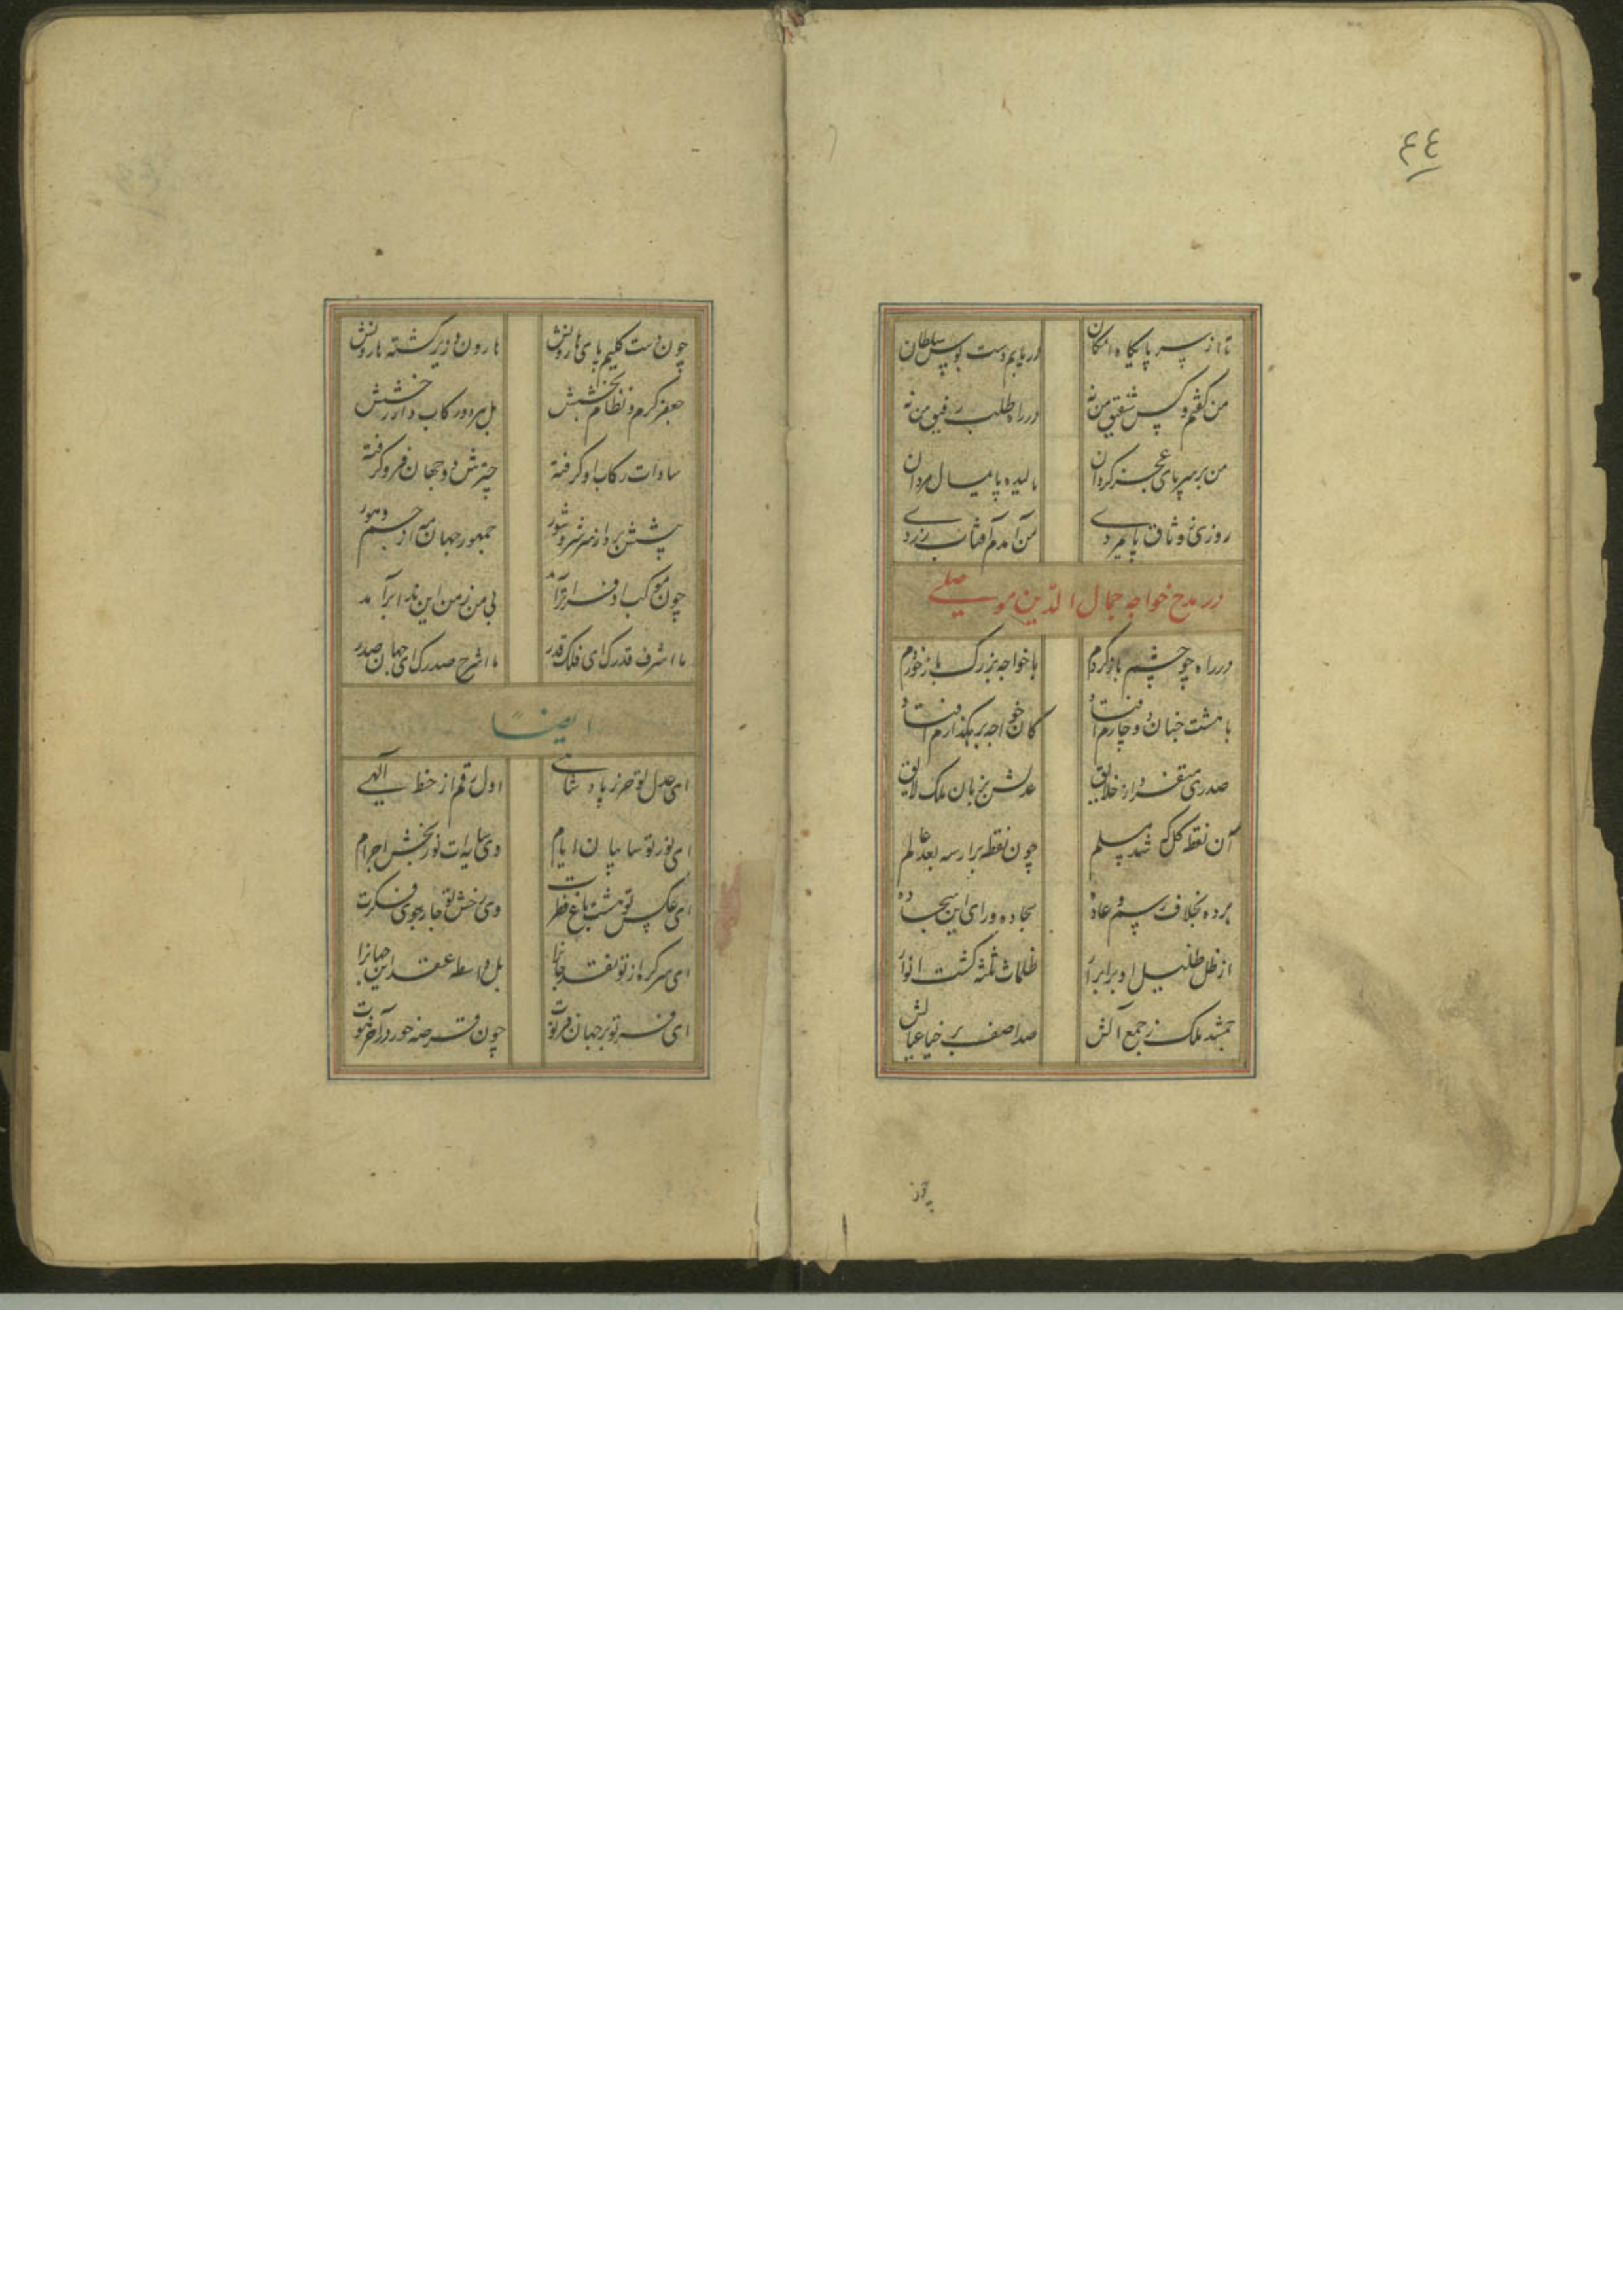 ٤٤
تا از سر پایگاه امکان دریابم دست بوس سلطان
من گفتم و کس شفیق من نه در راه طلب رفیق من نه
من بر سر پای عجز گردان مالیده پایمال مردان
روزی ز وثاق پایمردی من آمدم آفتاب زردی
در مدح خواجه جمال الدین موصلی
در راه چو چشم باز کردم با خواجه بزرگ باز خوردم
با هشت جنان دوچارم افتاد کان خواجه برهگذارم افتاد
صدری متفرد از خلایق عدلش بزبان ملک لایق
آن نقطه کل که شد مسلم چون نقطه برا رسه بعد عالم
برده بخلاف رسم و عاده سجاده ورای این سجاده
از ظل ظلیل او برابر آر ظلمات ثلثه گشت انوار
جمشید ملک ز جمع آلش صد آصف برخیا عیالش
چون
چون دست کلیم پای هارونش هارون و وزیر گشته هارونش
جعفر کرم و نظام بخشش بل هر دو رکاب دار رخشش
سادات رکاب او گرفته چترش دو جهان فرو گرفته
پیشش بر از سر شر و شور جمهور جهان مه از جم و هور
چون موکب او فراتر آمد بی من ز من این ندا برآمد
ما اشرف قدرک ای فلک قدر ما اشرح صدرک ای جهان صدر
ایضاً
ای عدل تو حرز پادشاهی اول رقم از خط آلهی
ای نور تو سایبان ایام وی سایه‌ات نوربخش اجرام
ای عکس تو هشت باغ فطرت وی رخش تو چارجوی فکرت
ای سر گره از تو نقد جانرا بل واسطه عقد این جهانرا
ای فر تو بر جهان فرتوت چون قرصه خور در آخر حوت